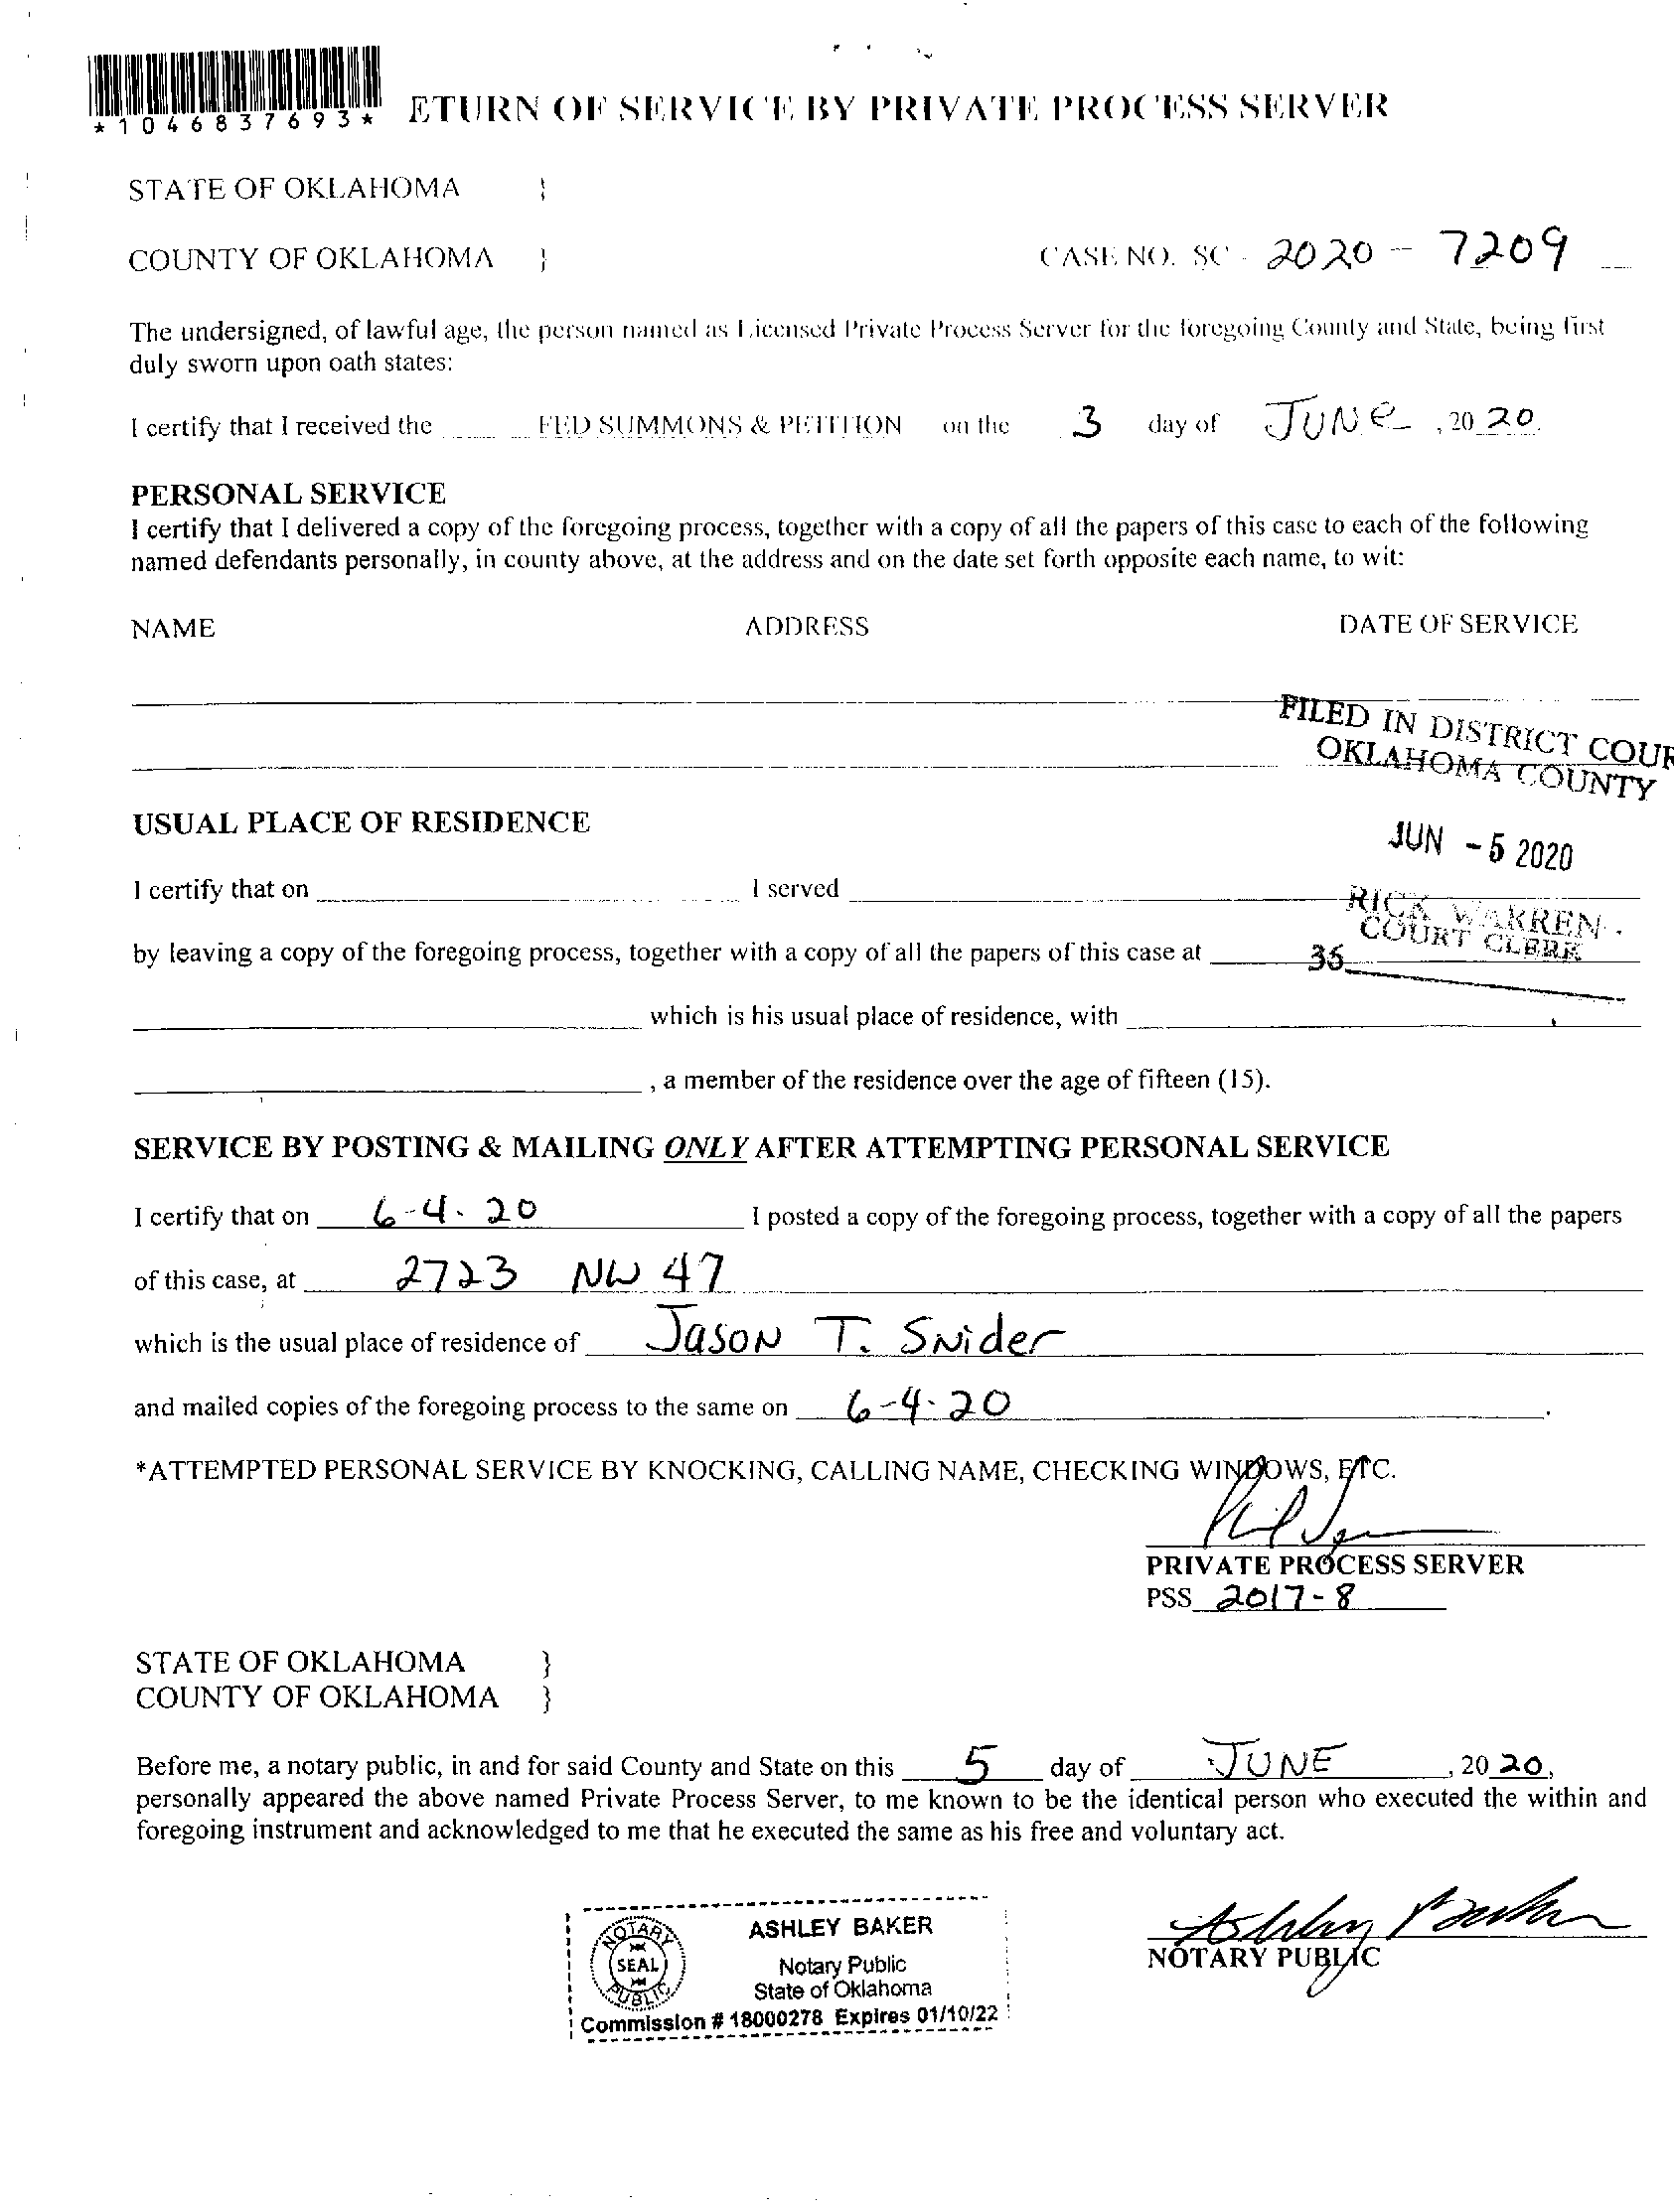 *1046837693*
ETURN OF SERVICE BY PRIVATE PROCESS SERVER
STATE OF OKLAHOMA }
COUNTY OF OKLAHOMA } CASE NO. SC - 2020 - 7209
The undersigned, of lawful age, the person named as Licensed Private Process Server for the foregoing County and State, being first
duly sworn upon oath states:
I certify that I received the FED SUMMONS & PETITION on the 3 day of JUNe , 20 20.
PERSONAL SERVICE
I certify that I delivered a copy of the foregoing process, together with a copy of all the papers of this case to each of the following
named defendants personally, in county above, at the address and on the date set forth opposite each name, to wit:
NAME ADDRESS DATE OF SERVICE
FILED IN DISTRICT COUR
OKLAHOMA COUNTY
USUAL PLACE OF RESIDENCE
JUN - 5 2020
I certify that on I served
RICK WARREN
COURT CLERK
by leaving a copy of the foregoing process, together with a copy of all the papers of this case at
36
which is his usual place of residence, with
, a member of the residence over the age of fifteen (15).
SERVICE BY POSTING & MAILING ONLY AFTER ATTEMPTING PERSONAL SERVICE
I certify that on 6-4-20 I posted a copy of the foregoing process, together with a copy of all the papers
of this case, at 2723 NW 47
which is the usual place of residence of Jason T. Snider
and mailed copies of the foregoing process to the same on 6-4-20 .
*ATTEMPTED PERSONAL SERVICE BY KNOCKING, CALLING NAME, CHECKING WINDOWS, ETC.
PRIVATE PROCESS SERVER
PSS 2017-8
STATE OF OKLAHOMA }
COUNTY OF OKLAHOMA }
Before me, a notary public, in and for said County and State on this 5 day of JUNE , 20 20,
personally appeared the above named Private Process Server, to me known to be the identical person who executed the within and
foregoing instrument and acknowledged to me that he executed the same as his free and voluntary act.
Ashley Baker
NOTARY PUBLIC
NOTARY PUBLIC SEAL
ASHLEY BAKER
Notary Public
State of Oklahoma
Commission # 18000278 Expires 01/10/22